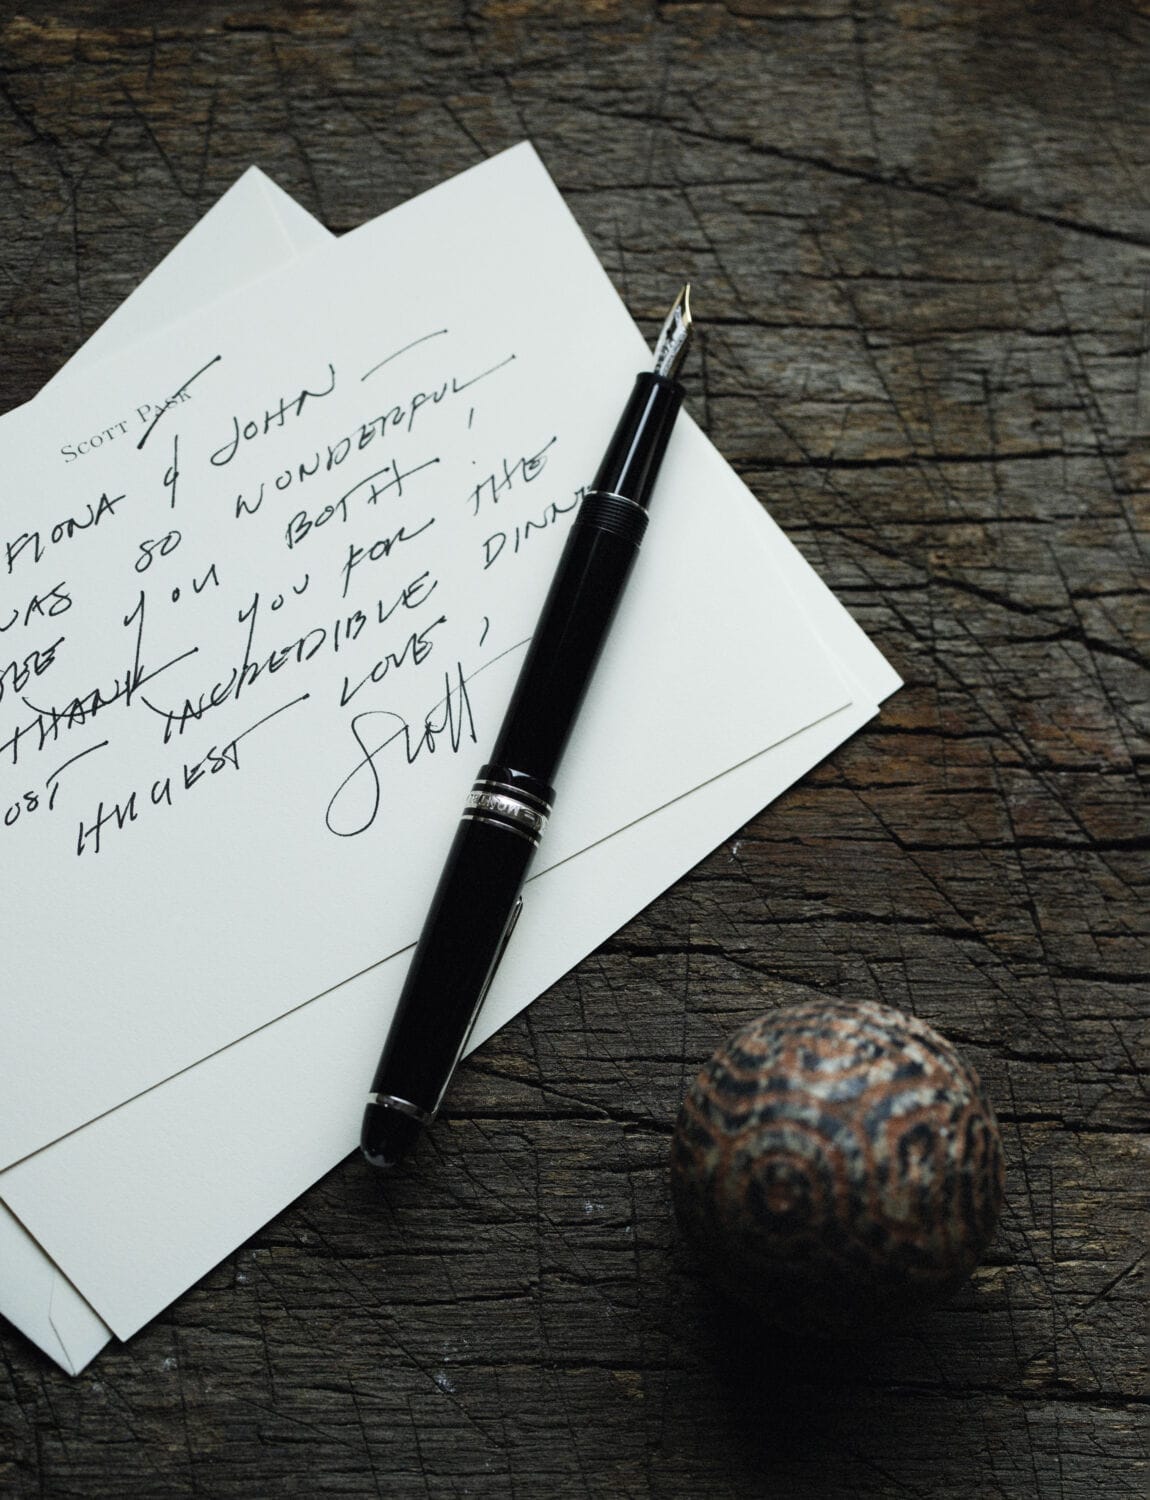 SCOTT PASK
FIONA & JOHN —
WAS SO WONDERFUL
SEE YOU BOTH!
THANK YOU FOR THE
OST INCREDIBLE DINN
HUGEST LOVE,
Scott
MONT